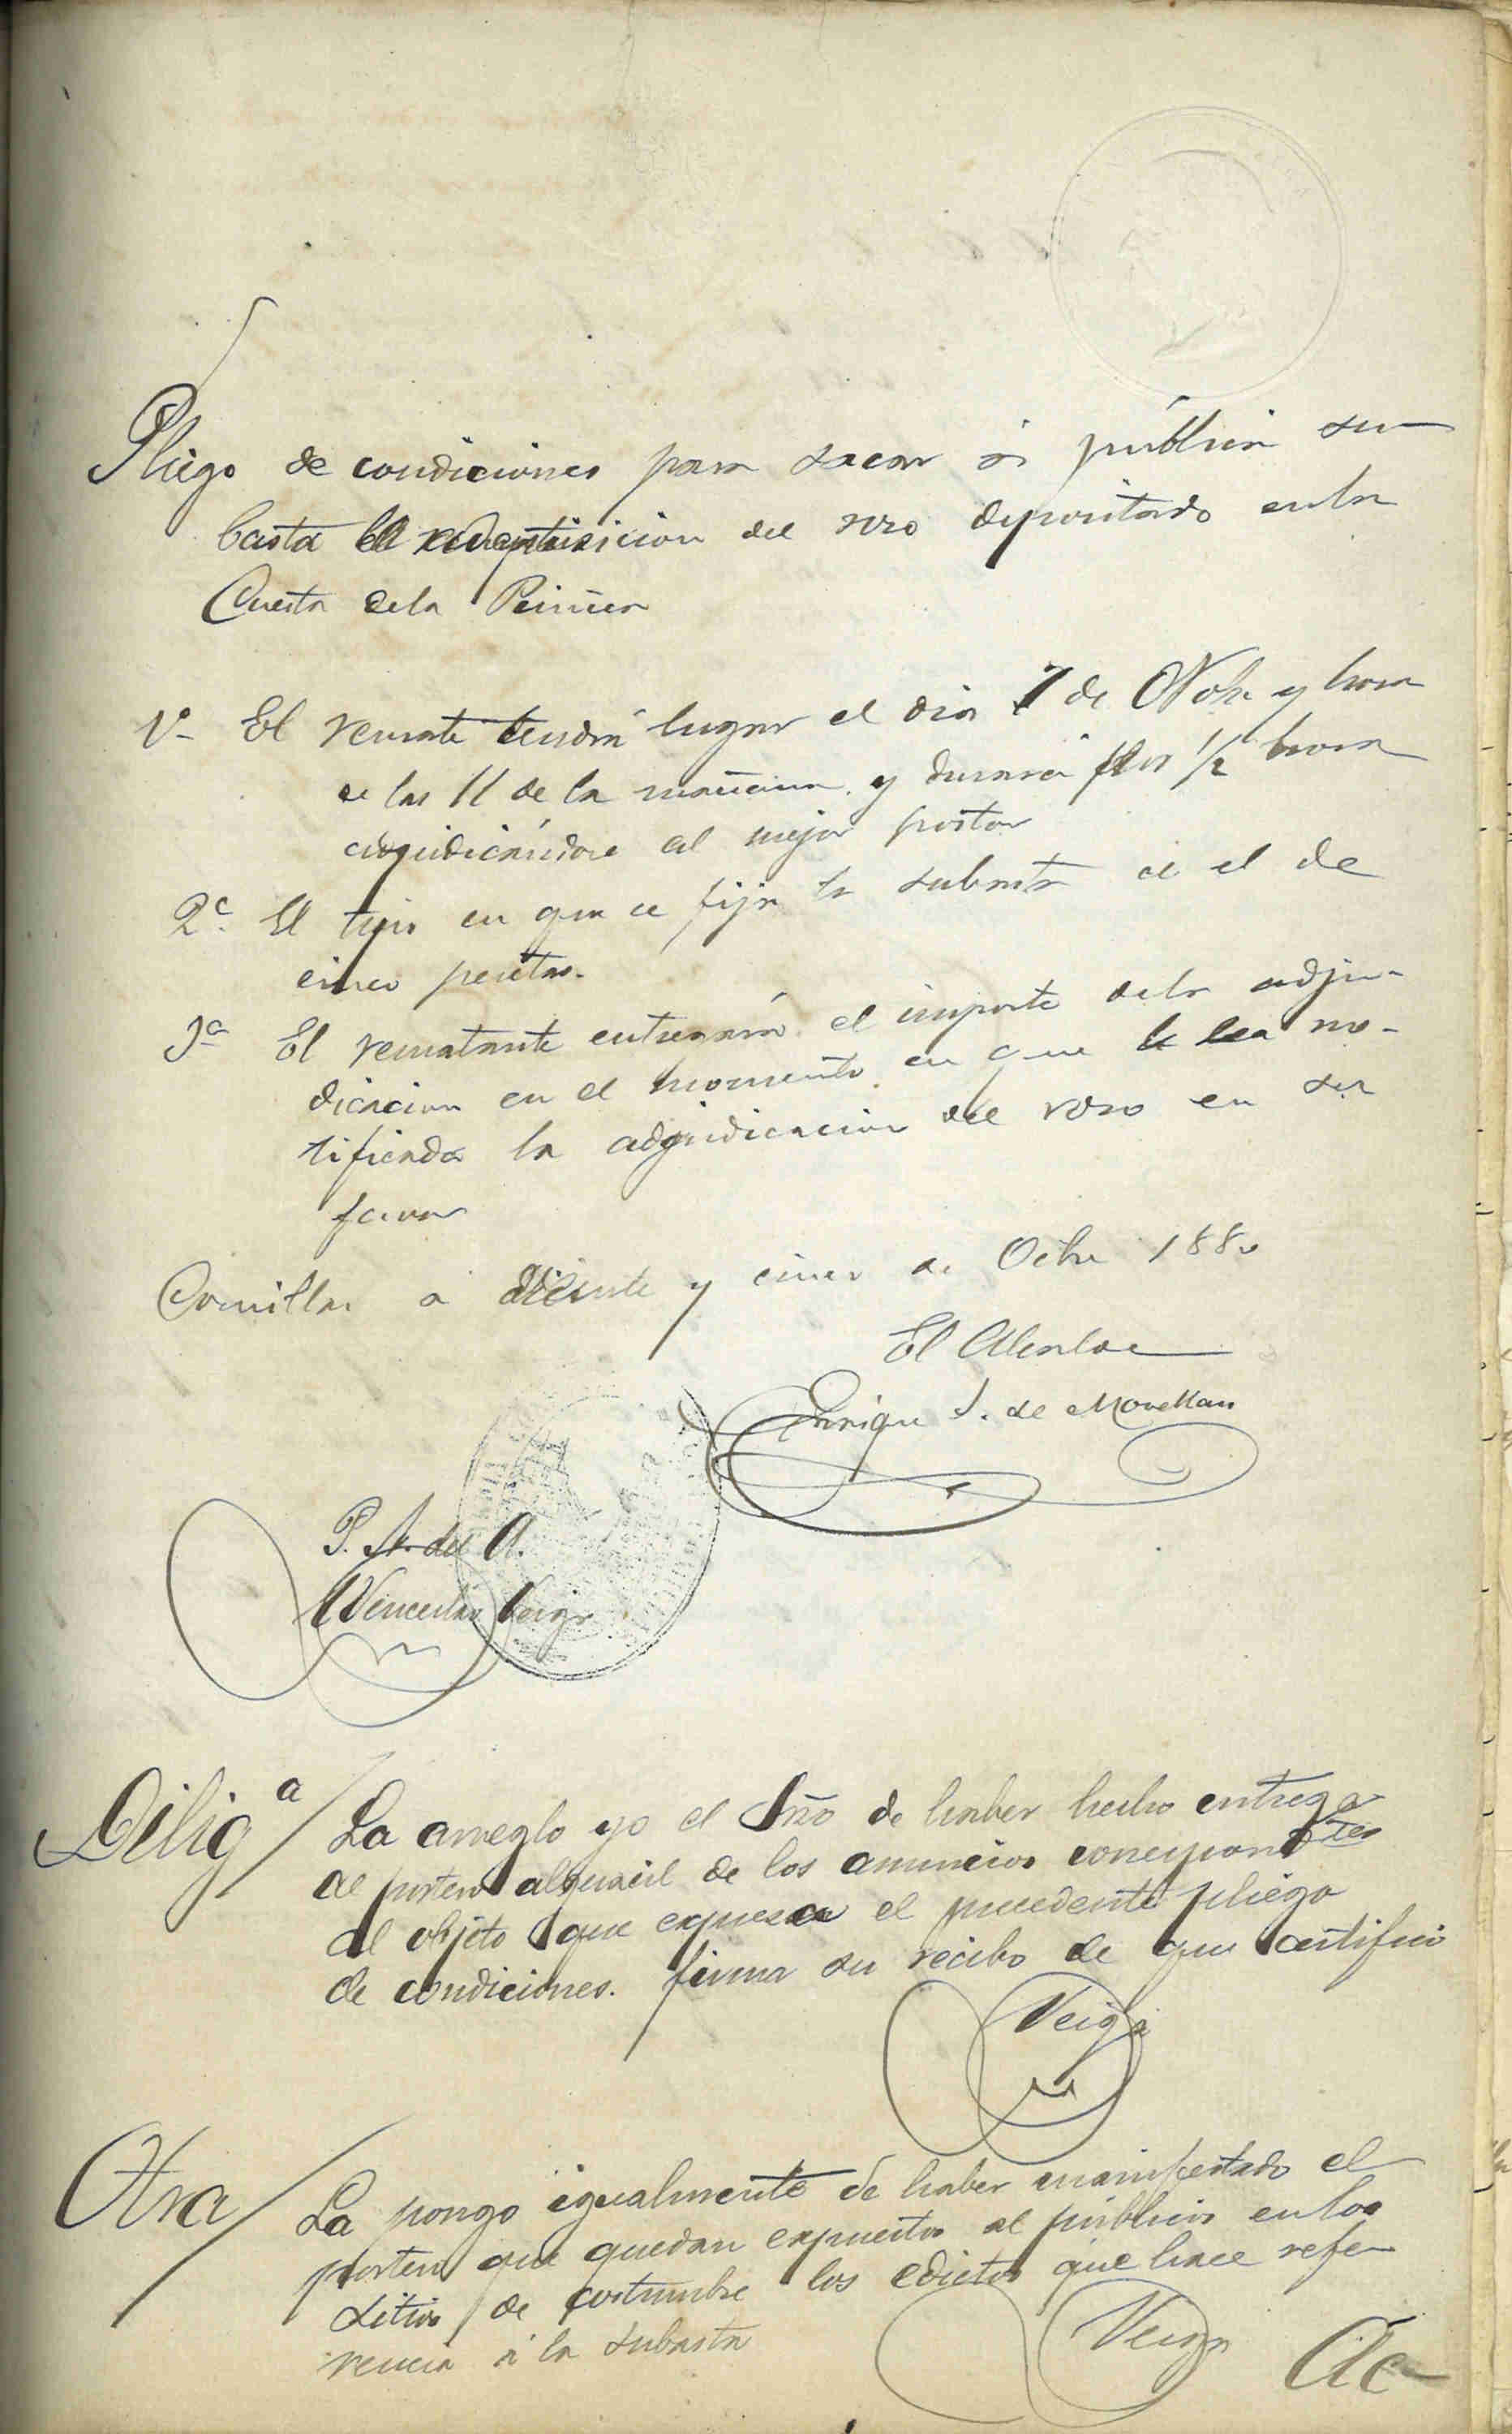 Pliego de condiciones para sacar á pública su
basta la adquisicion del rozo depositado en la
Cuesta de la
1ª El remate tendrá lugar el dia 7 de Nobe y hora
de las 11 de la mañana y durará 1/2 hora
adjudicándose al mejor postor
2ª El tipo en que se fija la subasta es el de
cinco pesetas.
3ª El rematante entregará el importe de la adju-
dicacion en el momento en que le sea no-
tificada la adjudicacion del rozo en su
favor
Comillas a Veinte y cinco de Octbre 188
El Alcalde
Enrique S. de Movellan
P. A. del A.
Wenceslao Veiga
Diliga / La arreglo yo el Srio de haber hecho entrega
al portero alguacil de los anuncios correspondtes
al objeto que expresa el precedente pliego
de condiciones. firma su recibo de que certifico
Veiga
Otra / La pongo igualmente de haber manifestado el
portero que quedan expuestos al público en los
sitios de costumbre los edictos que hace refe
rencia á la subasta
Veiga
Ac